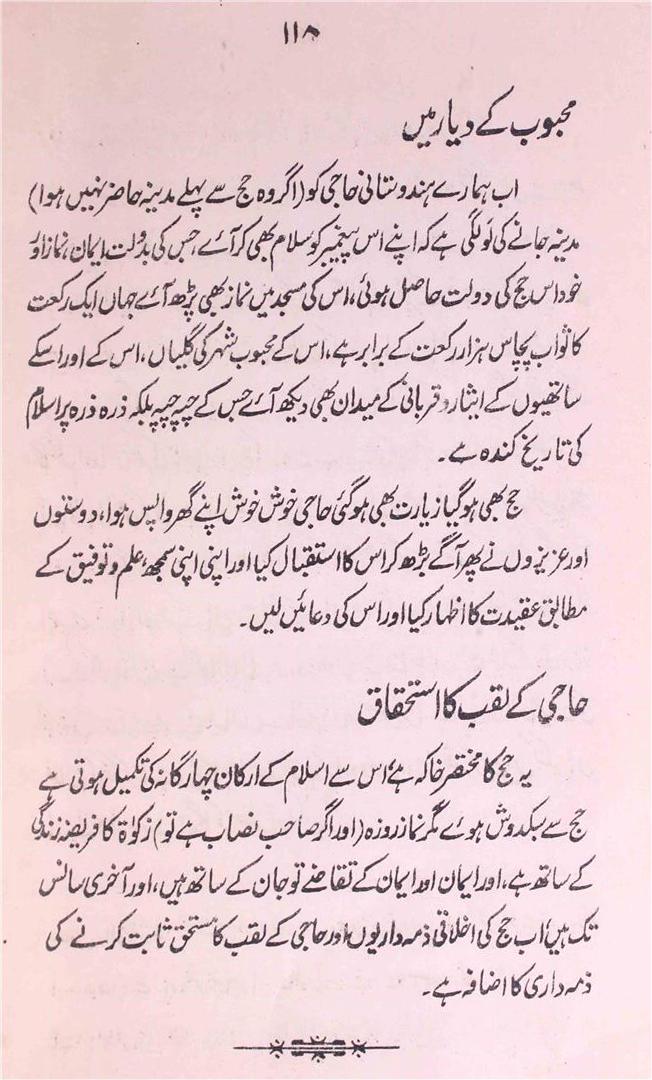 ۱۱۸
محبوب کے دیار میں
اب ہمارے ہندوستانی حاجی کو (اگر وہ حج سے پہلے مدینہ حاضر نہیں ہوا)
مدینہ جانے کی لَو لگی ہے کہ اپنے اس پیغمبر کو سلام بھی کر آئے، جس کی بدولت ایمان، نماز اور
خود اس حج کی دولت حاصل ہوئی، اس کی مسجد میں نماز بھی پڑھ آئے جہاں ایک رکعت
کا ثواب پچاس ہزار رکعت کے برابر ہے، اس کے محبوب شہر کی گلیاں، اس کے اور اسکے
ساتھیوں کے ایثار و قربانی کے میدان بھی دیکھ آئے جس کے چپہ چپہ بلکہ ذرہ ذرہ پر اسلام
کی تاریخ کندہ ہے۔
حج بھی ہوگیا زیارت بھی ہوگئی حاجی خوش خوش اپنے گھر واپس ہوا، دوستوں
اور عزیزوں نے پھر آگے بڑھ کر اس کا استقبال کیا اور اپنی اپنی سمجھ، علم و توفیق کے
مطابق عقیدت کا اظہار کیا اور اس کی دعائیں لیں۔
حاجی کے لقب کا استحقاق
یہ حج کا مختصر خاکہ ہے، اس سے اسلام کے ارکان چہارگانہ کی تکمیل ہوتی ہے
حج سے سبکدوش ہوئے مگر نماز روزہ (اور اگر صاحب نصاب ہے تو) زکوٰۃ کا فریضہ زندگی
کے ساتھ ہے، اور ایمان اور ایمان کے تقاضے تو جان کے ساتھ ہیں، اور آخری سانس
تک ہیں، اب حج کی اخلاقی ذمہ داریوں اور حاجی کے لقب کا مستحق ثابت کرنے کی
ذمہ داری کا اضافہ ہے۔